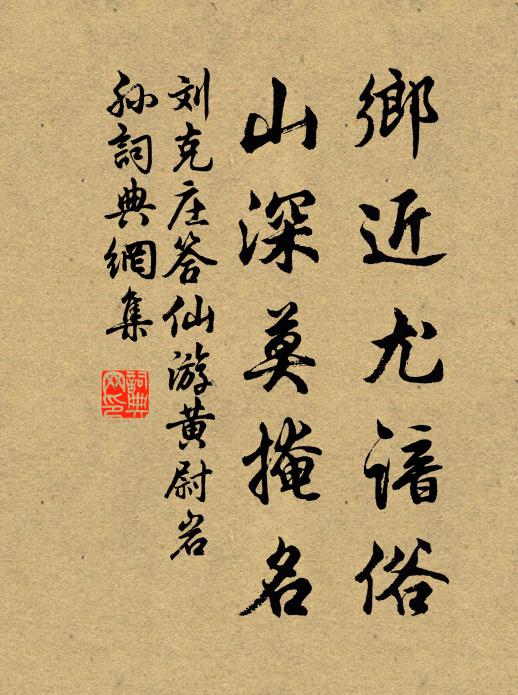 鄉近尤諳俗
山深莫掩名
刘克庄答仙游黄尉岩
孙詞典網集
詞典網印